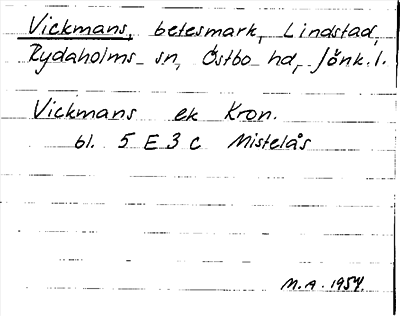 Vickmans, betesmark, Lindstad,
Rydaholms sn, Östbo hd, Jönk. l.
Vickmans ek Kron.
bl. 5 E 3 c Mistelås
M.A. 1954.